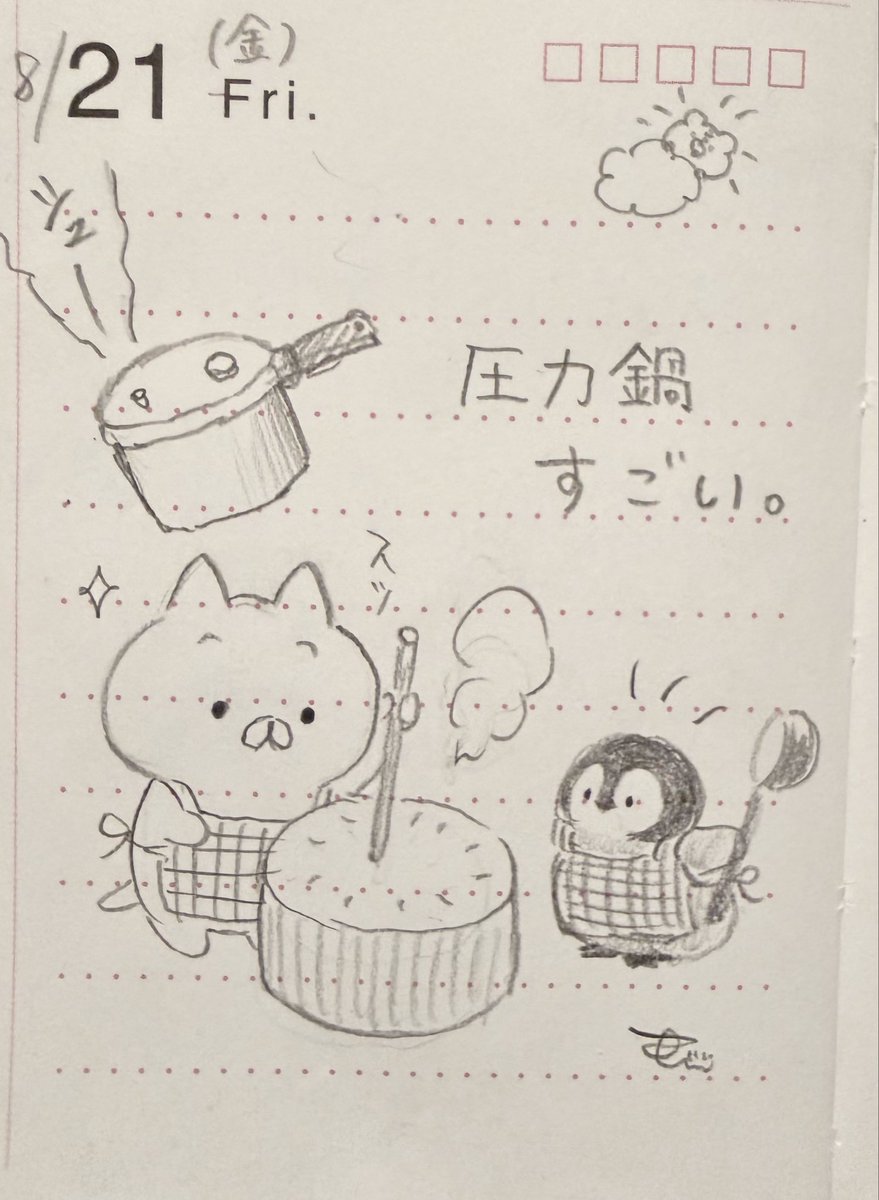 8/21 (金)
Fri.
圧力鍋
すごい。
スッ